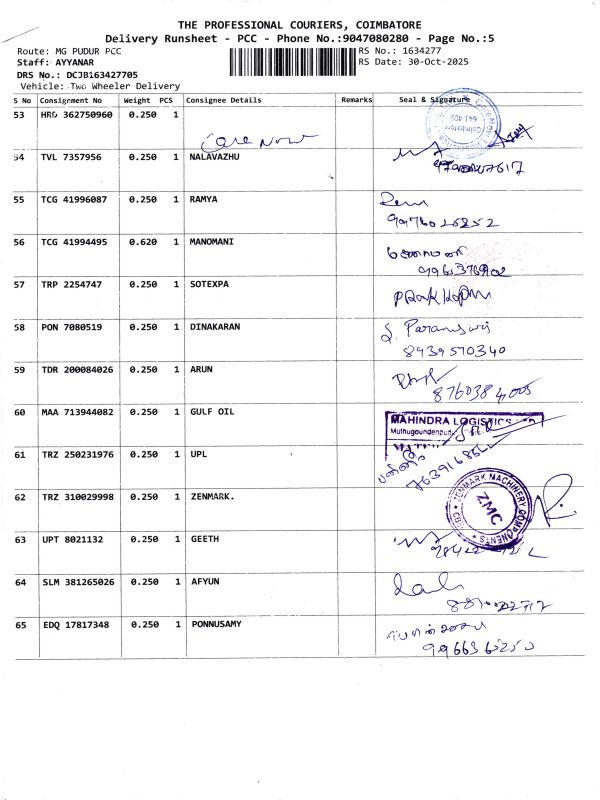 THE PROFESSIONAL COURIERS, COIMBATORE
Delivery Runsheet - PCC - Phone No.:9047080280 - Page No.:5
Route: MG PUDUR PCC
RS No.: 1634277
Staff: AYYANAR
RS Date: 30-Oct-2025
DRS No.: DCJB163427705
Vehicle: Two Wheeler Delivery
S No Consignment No Weight PCS Consignee Details Remarks Seal & Signature
53 HRG 362750960 0.250 1
Care Now
54 TVL 7357956 0.250 1 NALAVAZHU
55 TCG 41996087 0.250 1 RAMYA
56 TCG 41994495 0.620 1 MANOMANI
57 TRP 2254747 0.250 1 SOTEXPA
58 PON 7080519 0.250 1 DINAKARAN
8939570340
59 TDR 200084026 0.250 1 ARUN
8760384005
60 MAA 713944082 0.250 1 GULF OIL
MAHINDRA LOGISTICS
61 TRZ 250231976 0.250 1 UPL
62 TRZ 310029998 0.250 1 ZENMARK.
ZENMARK MACHINERY COMPONENTS
ZMC
63 UPT 8021132 0.250 1 GEETH
64 SLM 381265026 0.250 1 AFYUN
65 EDQ 17817348 0.250 1 PONNUSAMY